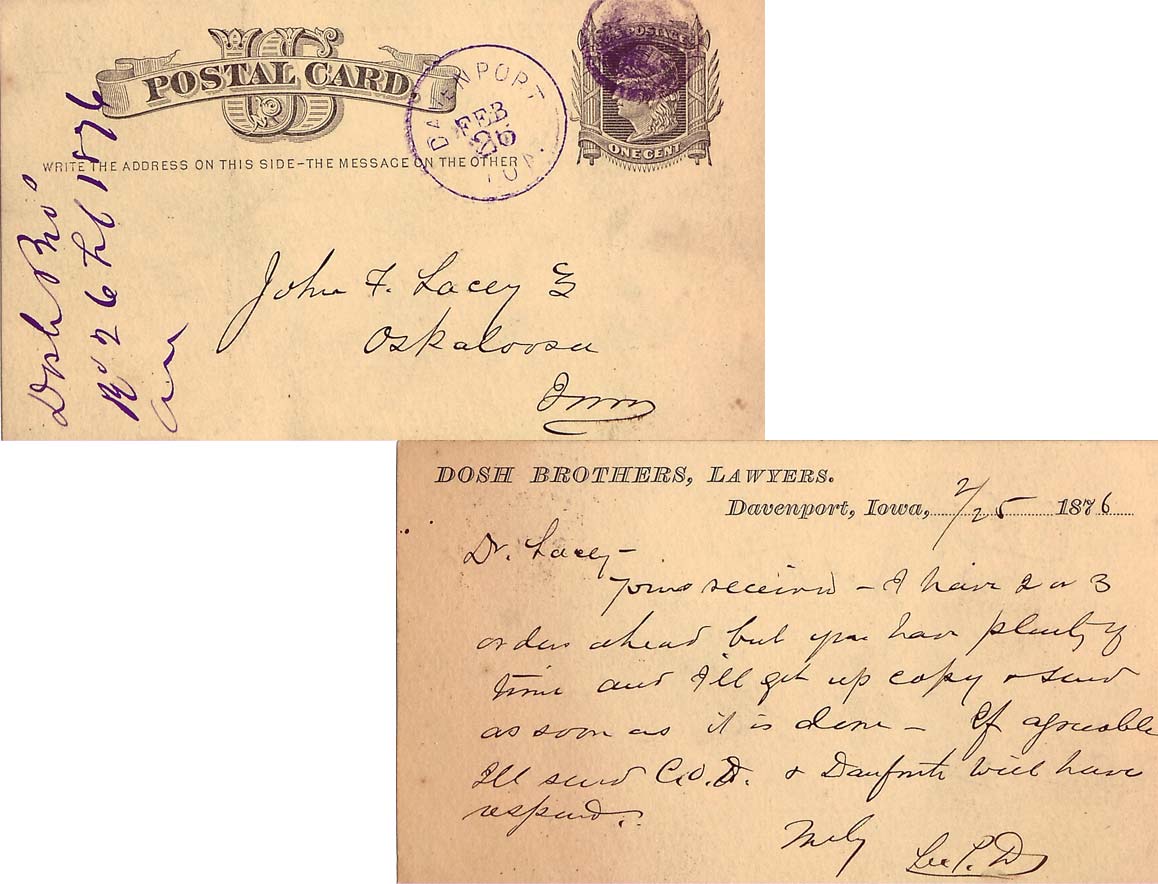 US
POSTAL CARD
WRITE THE ADDRESS ON THIS SIDE–THE MESSAGE ON THE OTHER
DAVENPORT
FEB
26
IOWA.
U.S. POSTAGE
ONE CENT
Dosh Bros
Rd 26 Feb 1876
John F. Lacey
Oskaloosa
Iowa
DOSH BROTHERS, LAWYERS.
Davenport, Iowa, 2/25 1876
Dr. Lacey –
Yours received – I have 2 or 3
orders ahead but you have plenty of
time and I'll get up copy & send
as soon as it is done – If agreeable
I'll send C.O.D. & Danforth will have
respond.
Truly
Lee P. D